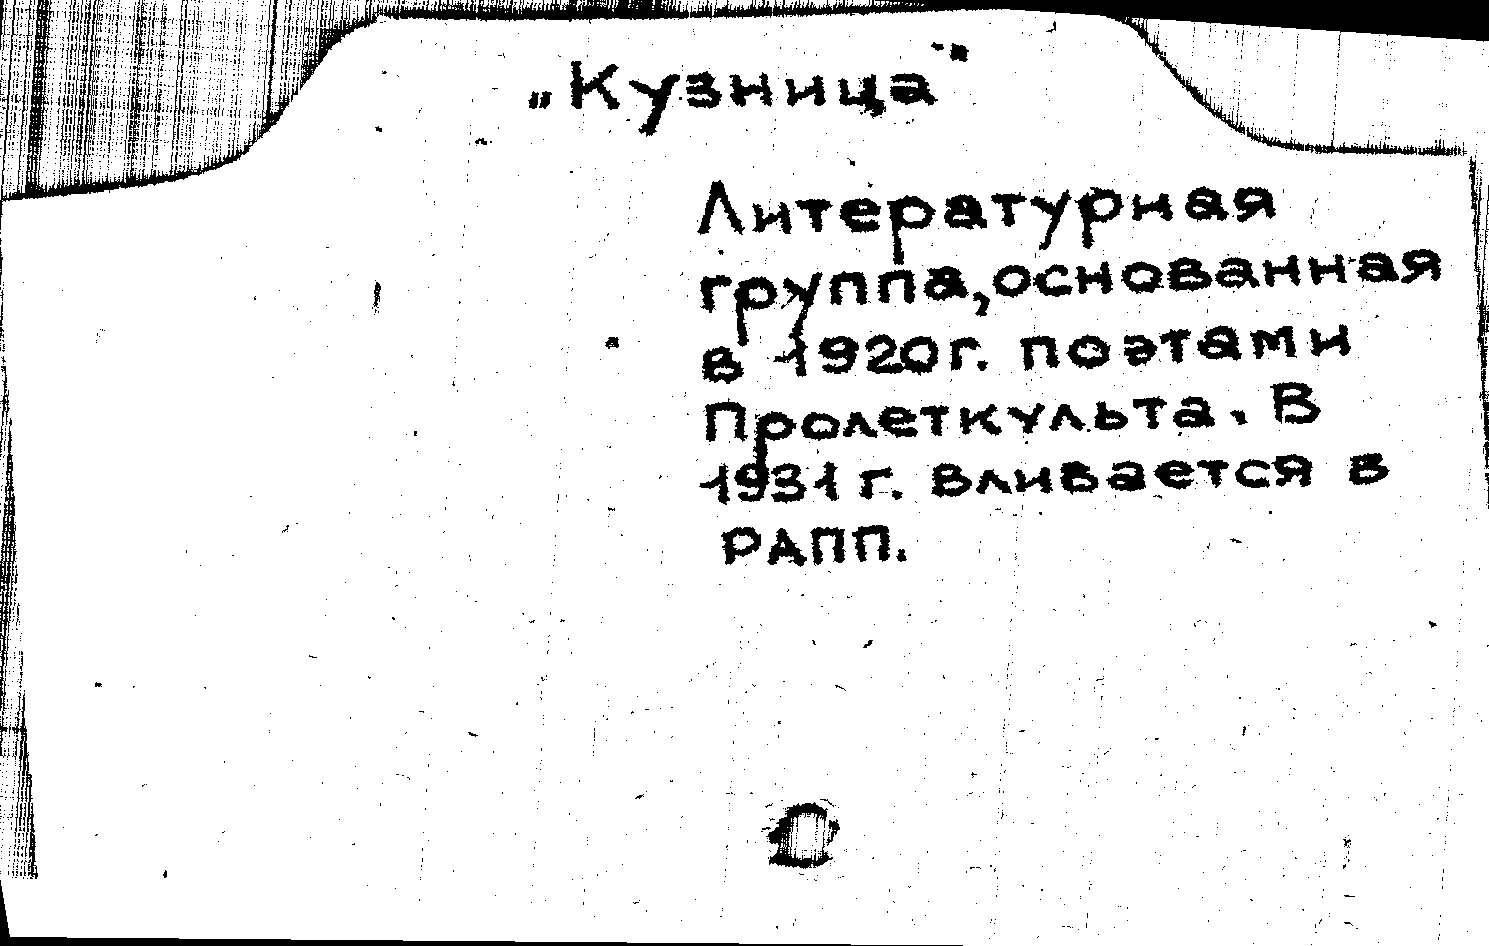 „Кузница"
Литературная
группа, основанная
в 1920г. поэтами
Пролеткульта. В
1931 г. вливается в
РАПП.